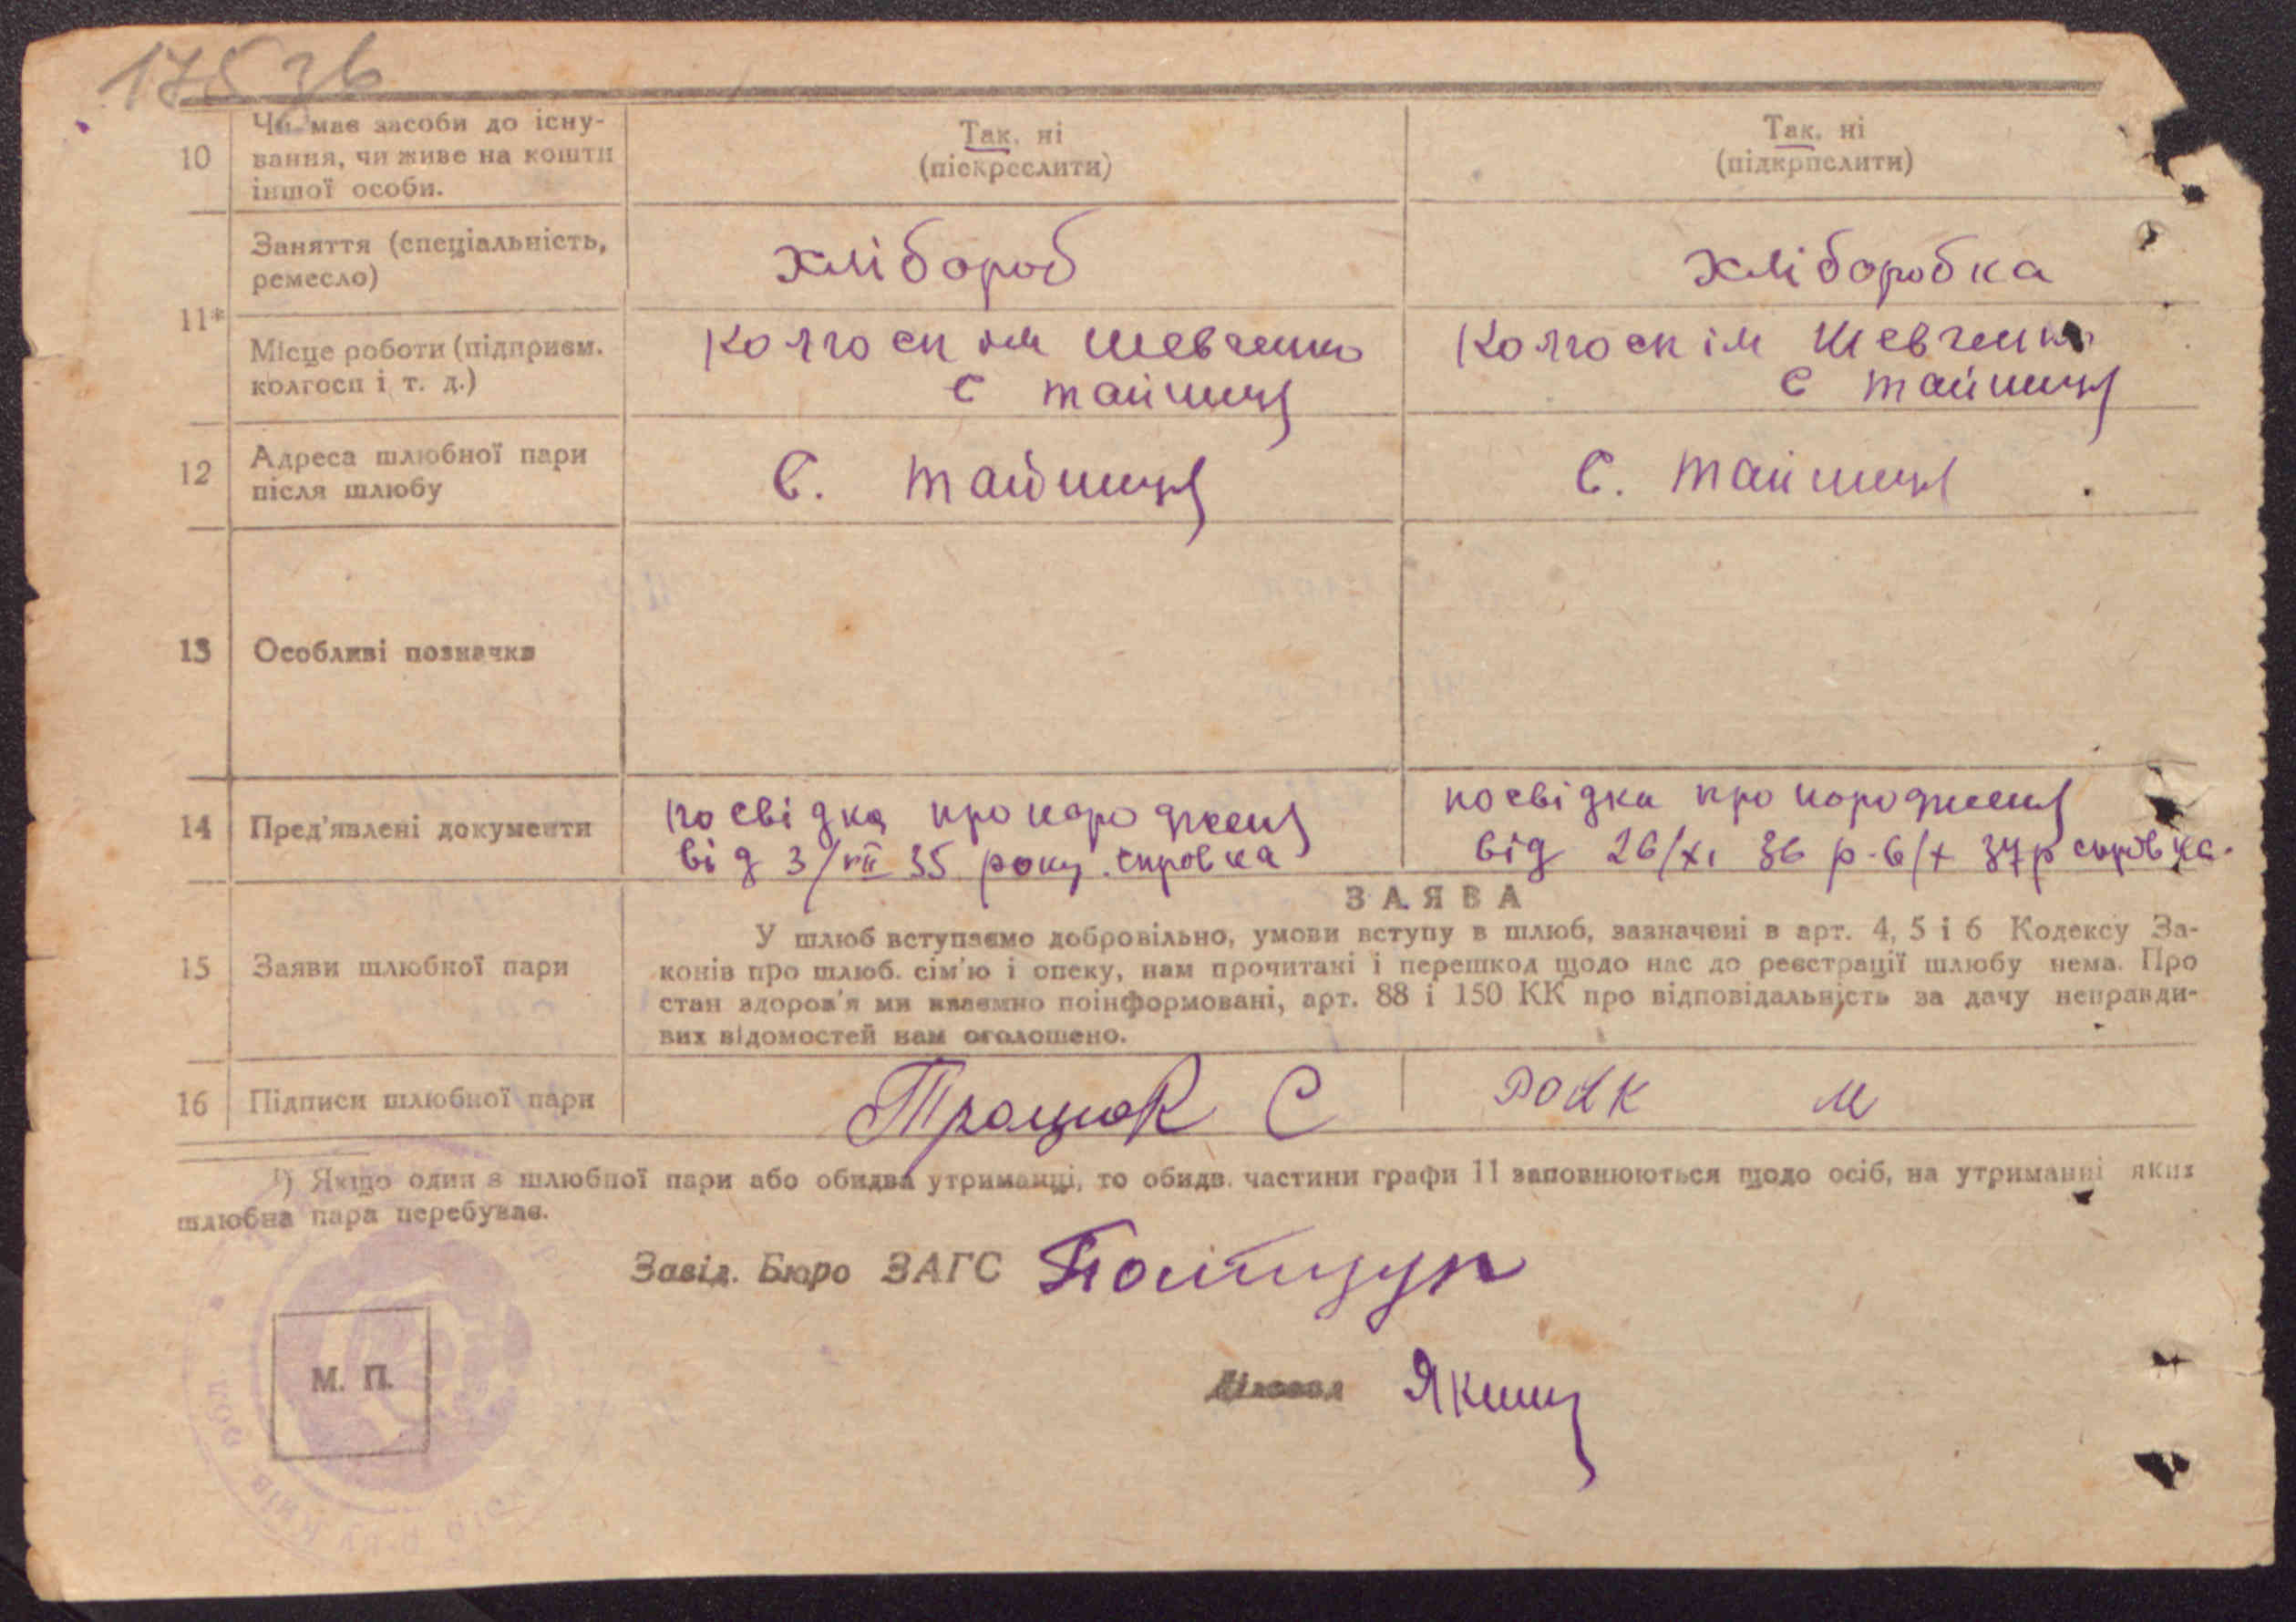 175 зв
10 Чи має засоби до існу-
вання, чи живе на кошти
іншої особи.
Так, ні
(піскреслити)
Так, ні
(підкрпслити)
11*
Заняття (спеціальність,
ремесло)
хлібороб
хліборобка
Місце роботи (підприєм.
колгосп і т. д.)
Колгосп ім Шевченко
с Тайниця
Колгосп ім Шевченко
с Тайниця
12 Адреса шлюбної пари
після шлюбу
С. Тайниця
С. Тайниця
13 Особливі позначки
14 Пред'явлені документи
посвідка про народження
від 3/VII 35 року. справка
посвідка про народження
від 26/XI 36 р. 6/X 37р справка.
15 Заяви шлюбної пари
ЗАЯВА
У шлюб вступаємо добровільно, умови вступу в шлюб, зазначені в арт. 4, 5 і 6 Кодексу За-
конів про шлюб. сім'ю і опеку, нам прочитані і перешкод щодо нас до реєстрації шлюбу нема. Про
стан здоров'я ми взаємно поінформовані, арт. 88 і 150 КК про відповідальність за дачу неправди-
вих відомостей нам оголошено.
16 Підписи шлюбної пари
Троцюк С
М
¹) Якщо один з шлюбної пари або обидва утриманці, то обидв. частини графи 11 заповнюються щодо осіб, на утриманні яких
шлюбна пара перебуває.
Завід. Бюро ЗАГС
Діловод
М. П.